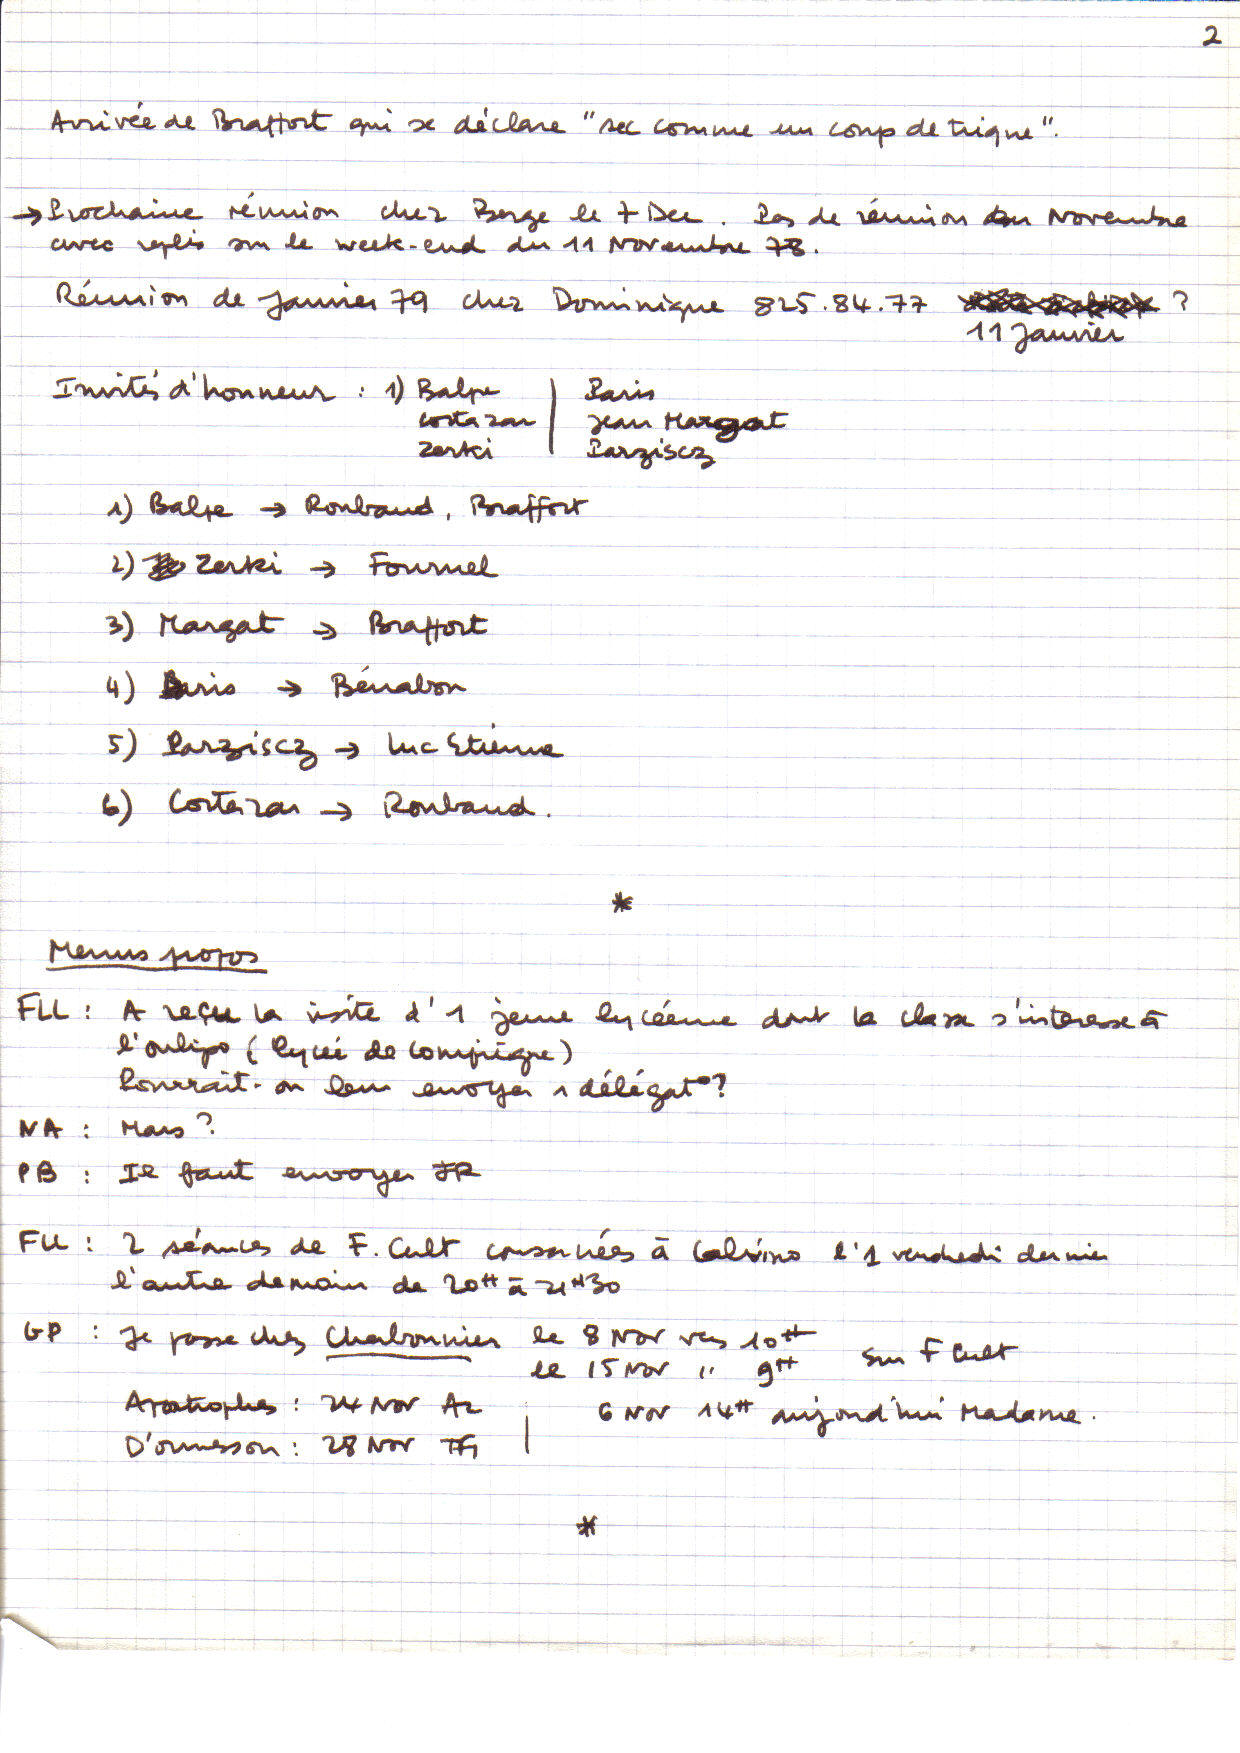 2
Arrivée de Braffort qui se déclare "sec comme un coup de trique".
→ Prochaine réunion chez Berge le 7 Dec. Pas de réunion en Novembre
avec replis sur le week-end du 11 Novembre 78.
Réunion de Janvier 79 chez Dominique 825.84.77 ?
11 Janvier
Invités d'honneur : 1) Balpe | Paris
Cortazar | Jean Margat
Zerki | Parziscz
1) Balpe → Roubaud, Braffort
2) Zerki → Fournel
3) Margat → Braffort
4) Paris → Bénabou
5) Parziscz → Luc Etienne
6) Cortazar → Roubaud.
*
Menus propos
FLL : A reçu la visite d'1 jeune lycéenne dont la classe s'interesse à
l'oulipo (lycée de Compiègne)
Pourrait-on leur envoyer 1 délégat°?
NA : Mars ?
PB : Il faut envoyer JR
FLL : 2 séances de F. Cult consacrées à Calvino l'1 vendredi dernier
l'autre demain de 20H à 21H30
GP : Je passe chez Charbonnier le 8 Nov vers 10H
le 15 Nov " 9H sur F Cult
Apostrophes : 24 Nov A2 | 6 Nov 14H aujourd'hui Madame.
D'ormesson : 28 Nov TF1 |
*